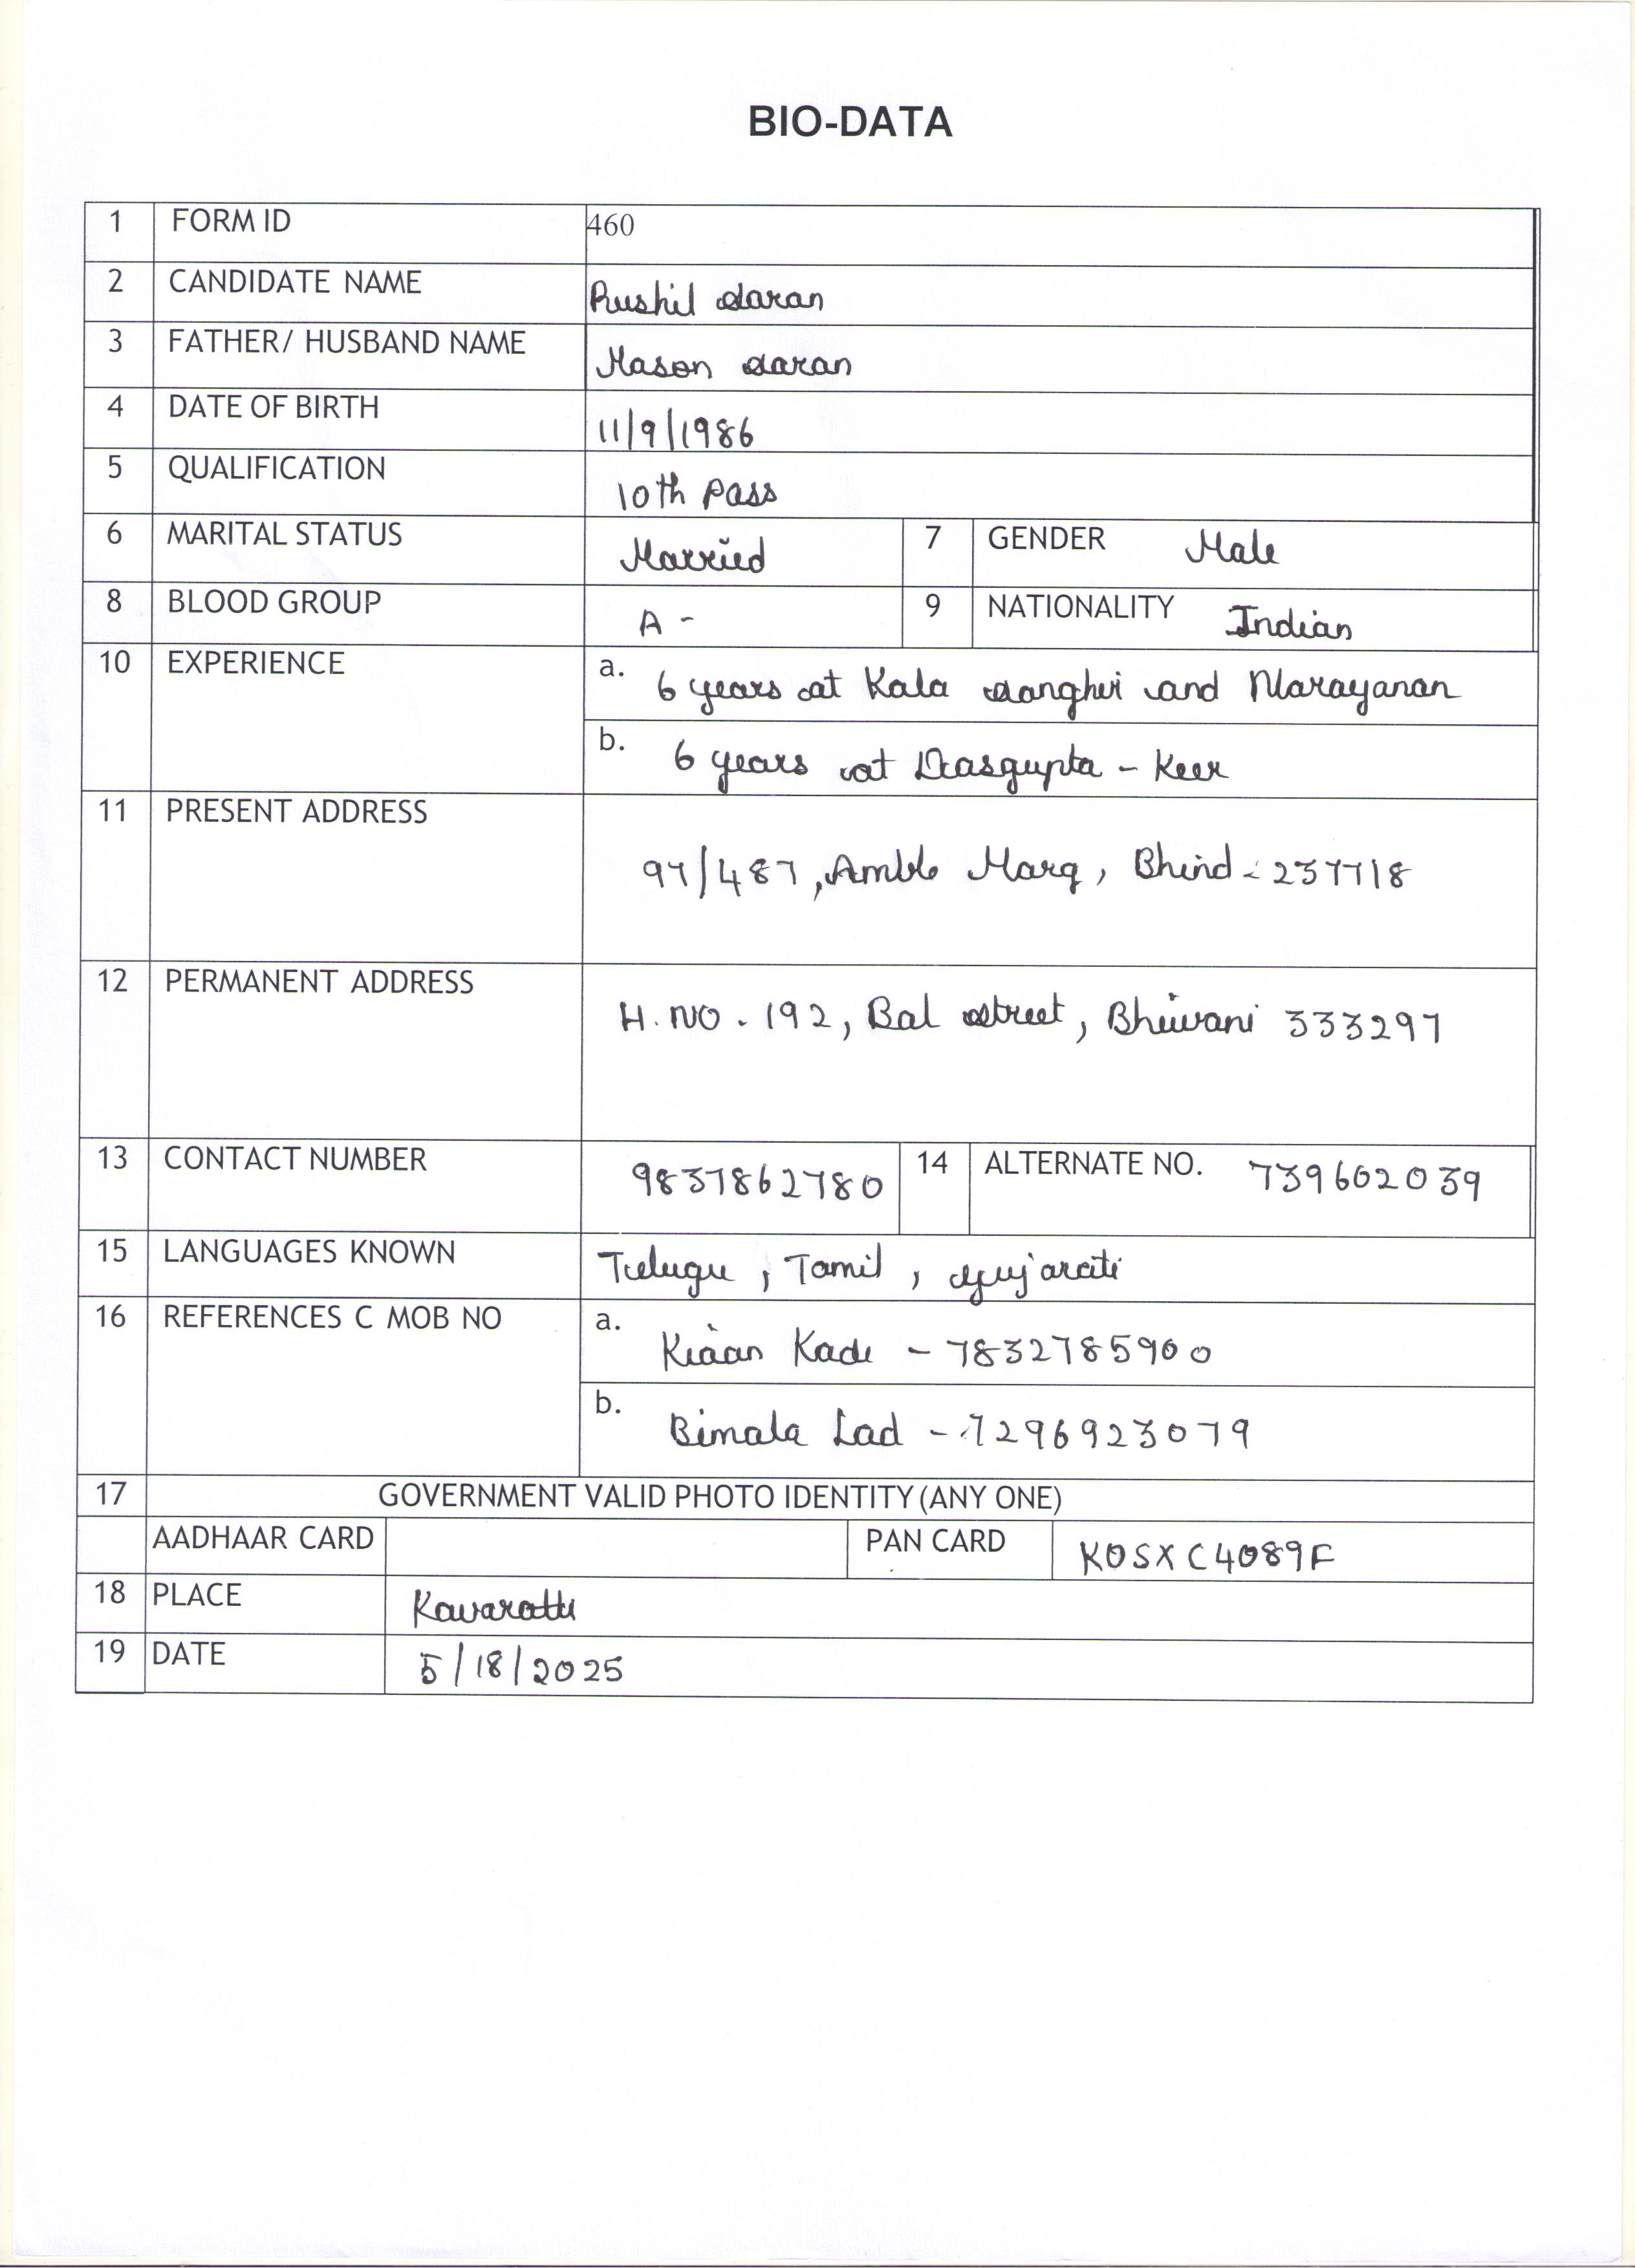 BIO-DATA
1 FORM ID 460
2 CANDIDATE NAME Rushil Saran
3 FATHER/ HUSBAND NAME Mason Saran
4 DATE OF BIRTH 11/9/1986
5 QUALIFICATION 10th pass
6 MARITAL STATUS Married 7 GENDER Male
8 BLOOD GROUP A - 9 NATIONALITY Indian
10 EXPERIENCE a. 6 years at Kala Sanghvi and Narayanan
b. 6 years at Dasgupta - Keer
11 PRESENT ADDRESS 97/487, Amble Marg, Bhind - 237718
12 PERMANENT ADDRESS H. NO. 192, Bal Street, Bhiwani 333297
13 CONTACT NUMBER 9837862780 14 ALTERNATE NO. 739602039
15 LANGUAGES KNOWN Telugu, Tamil, Gujarati
16 REFERENCES C MOB NO a. Kiaan Kade - 7832785900
b. Bimala Lad - 7296923079
17 GOVERNMENT VALID PHOTO IDENTITY (ANY ONE)
AADHAAR CARD PAN CARD KOSXC4089F
18 PLACE Kavaratti
19 DATE 5/18/2025